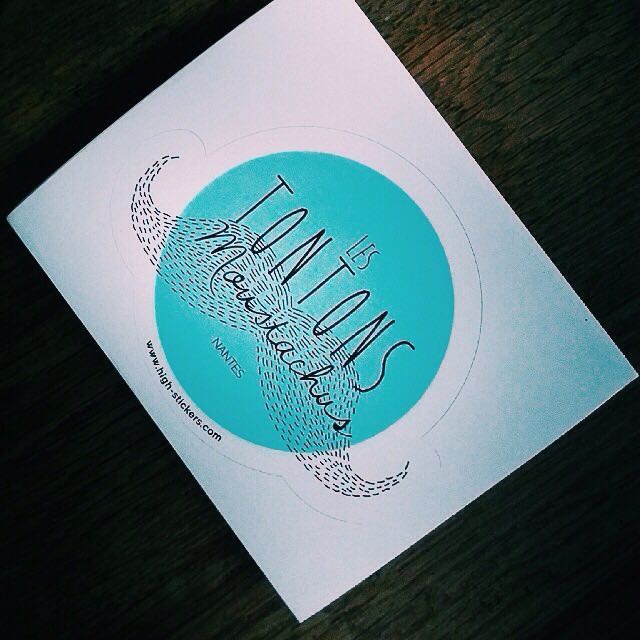 LES
TONTONS
Moustachus
NANTES
www.high-stickers.com